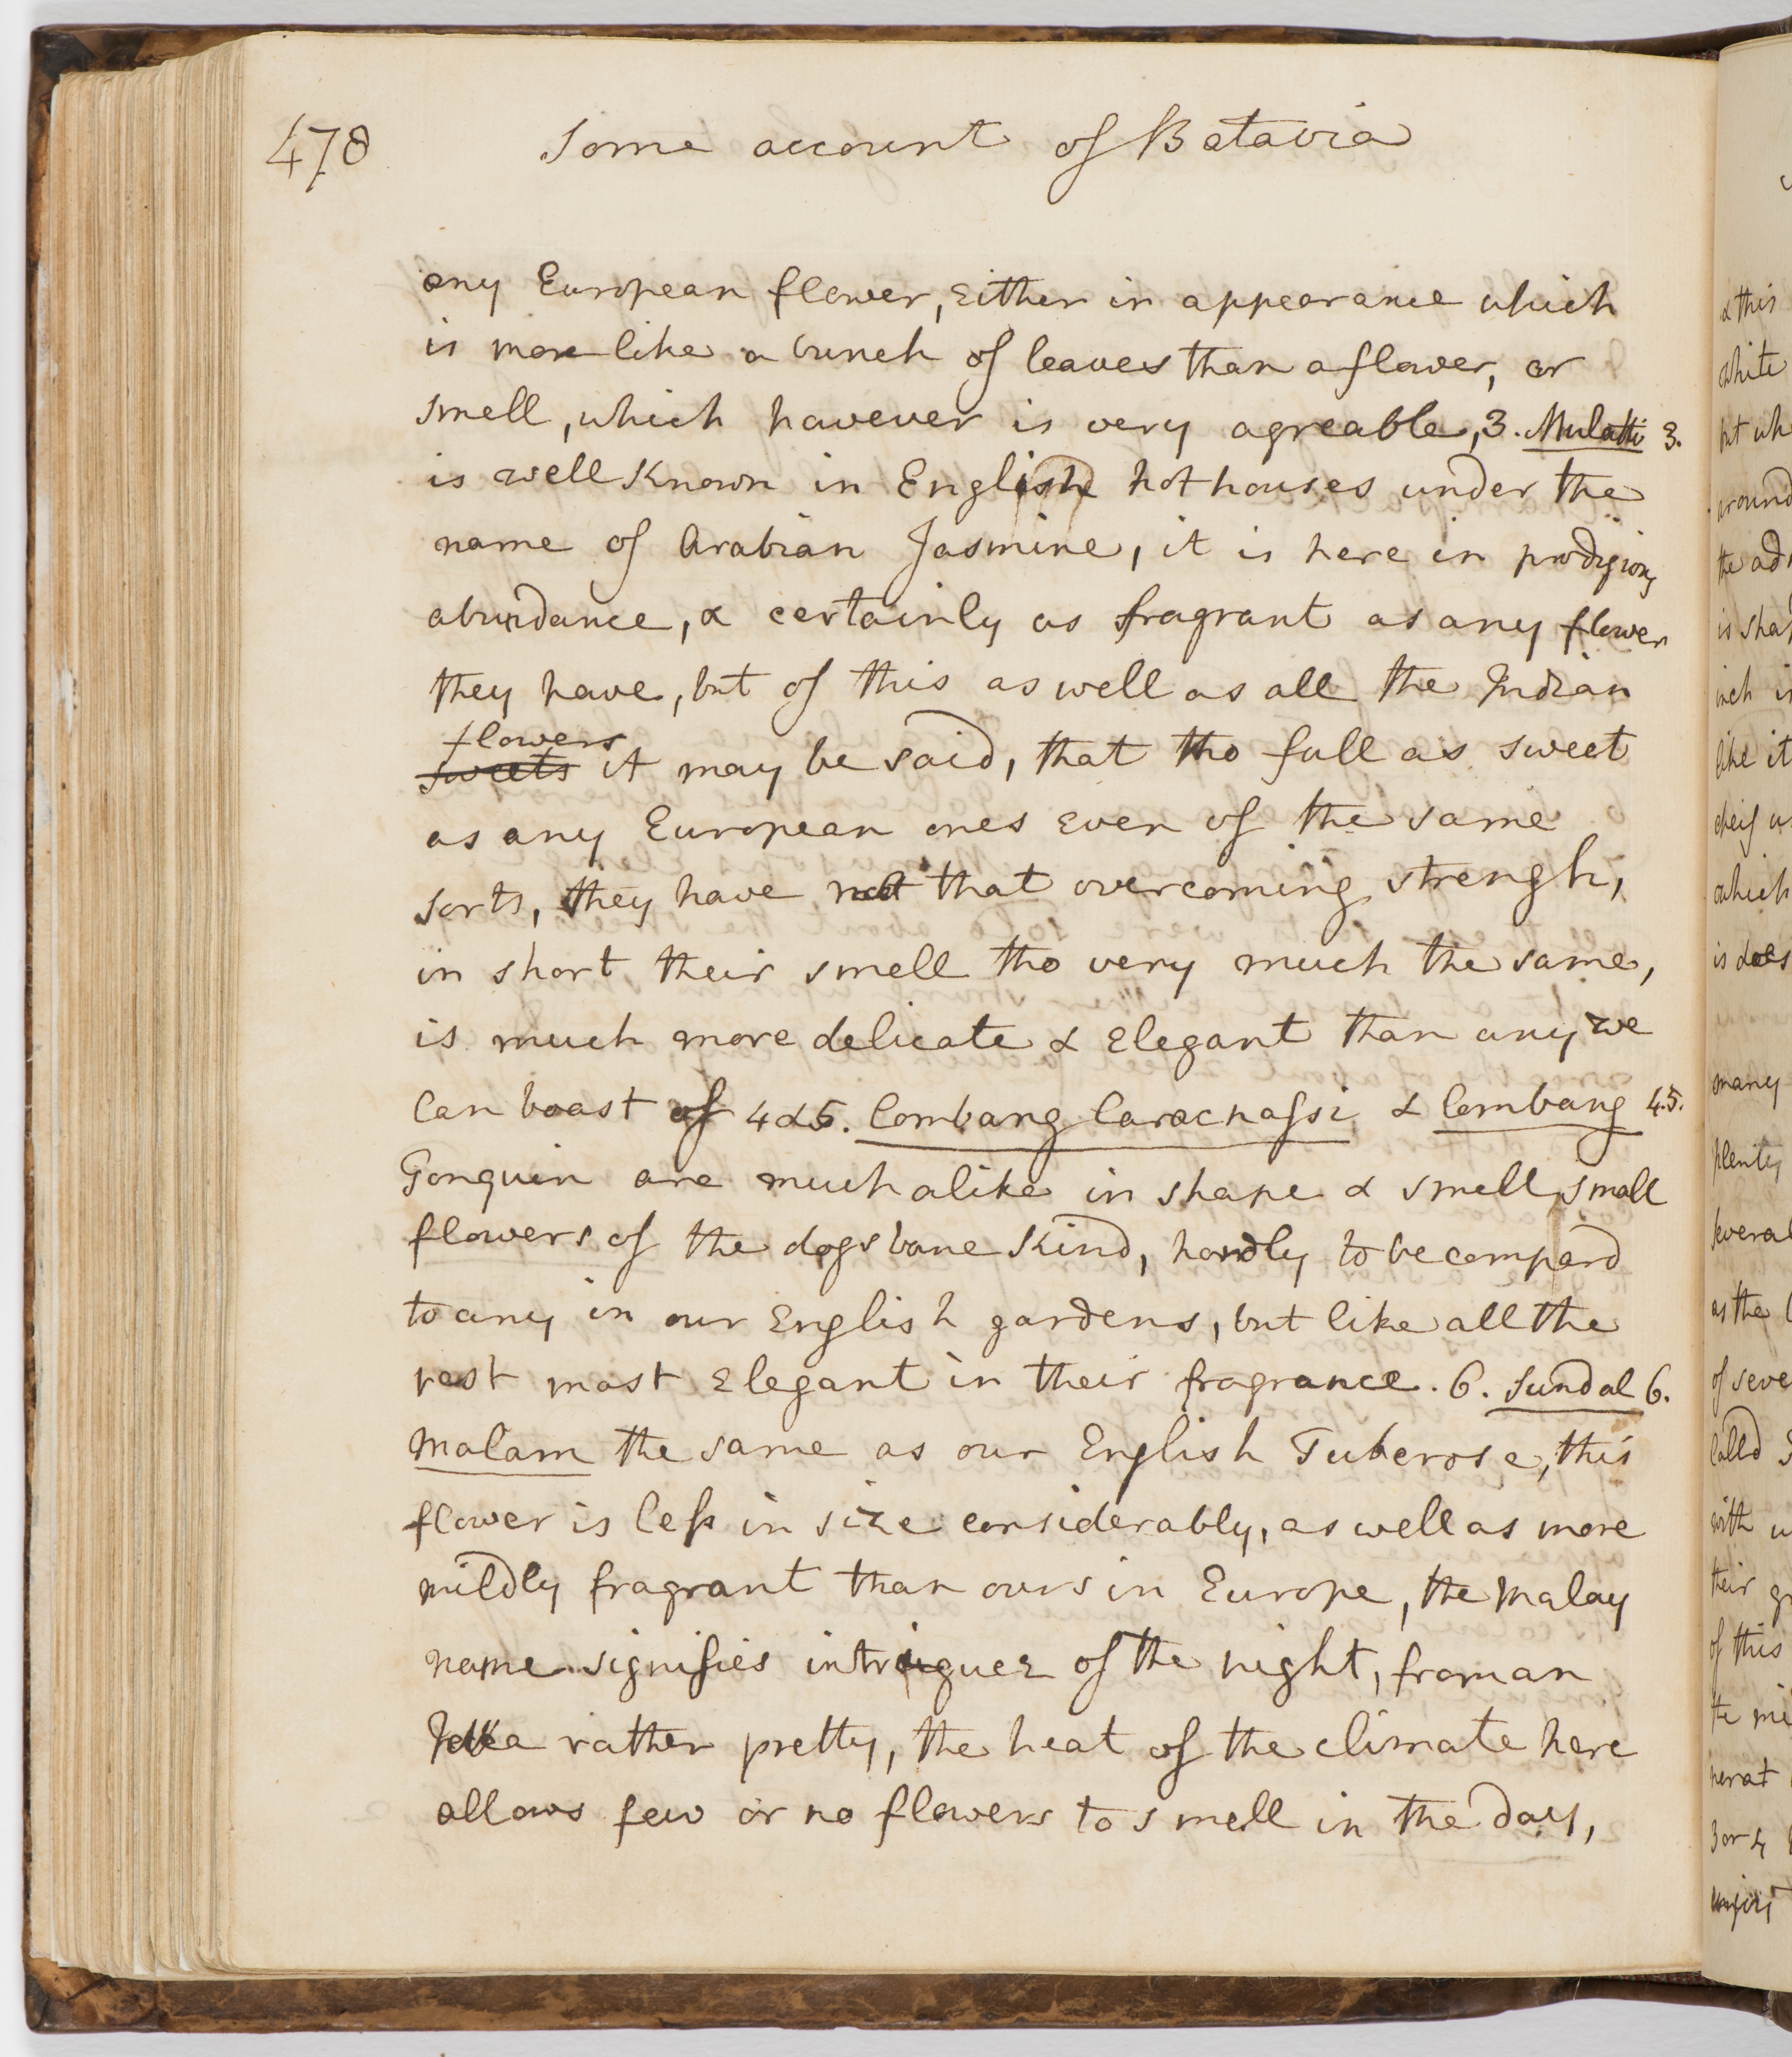 478 Some account of Batavia
any European flower, either in appearance which
is more like a bunch of leaves than a flower, or
smell, which however is very agreable, 3. Mulatti 3.
is well known in English hot houses under the
name of Arabian Jasmine, it is here in prodigious
abundance, & certainly as fragrant as any flower
they have, but of this as well as all the Indian
flowers
sweets it may be said, that tho full as sweet
as any European ones even of the same
sorts, they have not that overcoming strengh,
in short their smell tho very much the same,
is much more delicate & elegant than any we
can boast of 4 & 5. Combang Caracnassi & Combang 4.5.
Tonquin are much alike in shape & smell, small
flowers of the dogs bane kind, hardly to be compard
to any in our English gardens, but like all the
rest most elegant in their fragrance. 6. Sundal 6.
Malam the same as our English Tuberose, this
flower is less in size considerably, as well as more
mildly fragrant than ours in Europe, the Malay
name signifies intriguer of the night, from an
Idea rather pretty, the heat of the climate here
allows few or no flowers to smell in the day,
& this
white
but wh
around
the ad
is sha
inch i
like it
which
is does
many
plenty
several
as the
of seve
calld S
with
their
of this
the mi
3 or 4